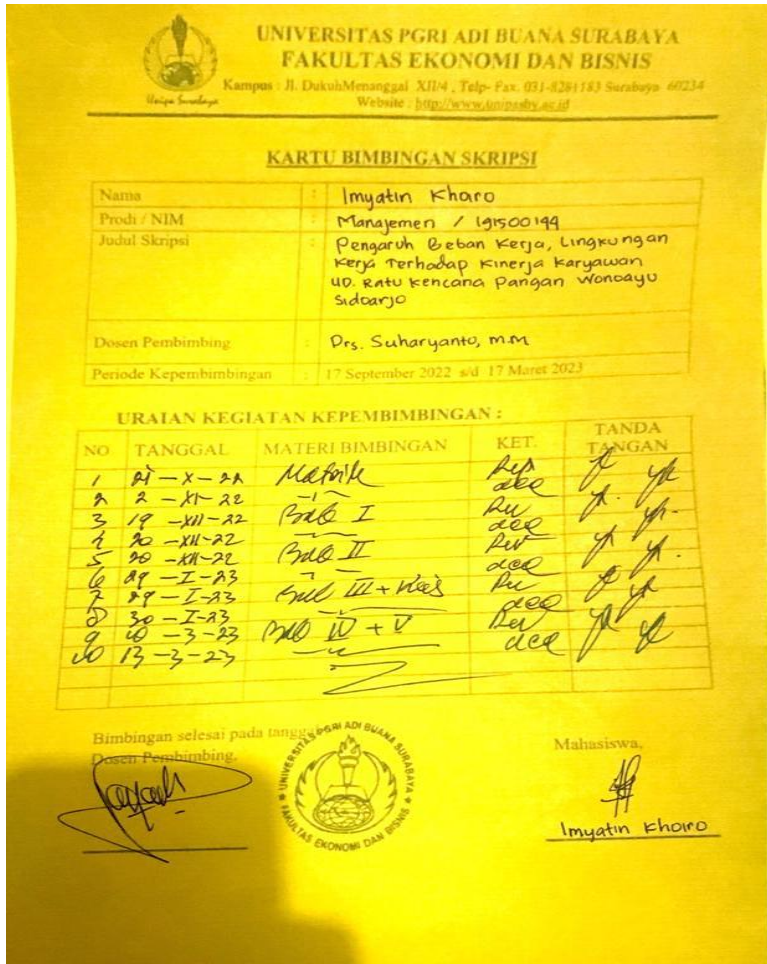 UNIVERSITAS PGRI ADI BUANA SURABAYA
FAKULTAS EKONOMI DAN BISNIS
Kampus : Jl. DukuhMenanggal XII/4 , Telp- Fax. 031-8281183 Surabaya 60234
Website : http://www.unipasby.ac.id
Unipa Surabaya
KARTU BIMBINGAN SKRIPSI
Nama : Imyatin Khoiro
Prodi / NIM : Manajemen / 191500144
Judul Skripsi : Pengaruh Beban Kerja, Lingkungan
Kerja Terhadap Kinerja Karyawan
UD. Ratu Kencana Pangan Wonoayu
Sidoarjo
Dosen Pembimbing : Drs. Suharyanto, m.m
Periode Kepembimbingan : 17 September 2022 s/d 17 Maret 2023
URAIAN KEGIATAN KEPEMBIMBINGAN :
NO TANGGAL MATERI BIMBINGAN KET. TANDA TANGAN
1 21 - X - 22 Matrik Rev
2 2 - XI - 22 acc
3 19 - XII - 22 Bab I Rev
4 20 - XII - 22 acc
5 20 - XII - 22 Bab II Rev
6 29 - I - 23 acc
7 29 - I - 23 Bab III + Rev
8 30 - I - 23 acc
9 10 - 3 - 23 Bab IV + V Rev
10 13 - 3 - 23 acc
Bimbingan selesai pada
Dosen Pembimbing,
UNIVERSITAS PGRI ADI BUANA SURABAYA
FAKULTAS EKONOMI DAN BISNIS
Mahasiswa,
Imyatin Khoiro